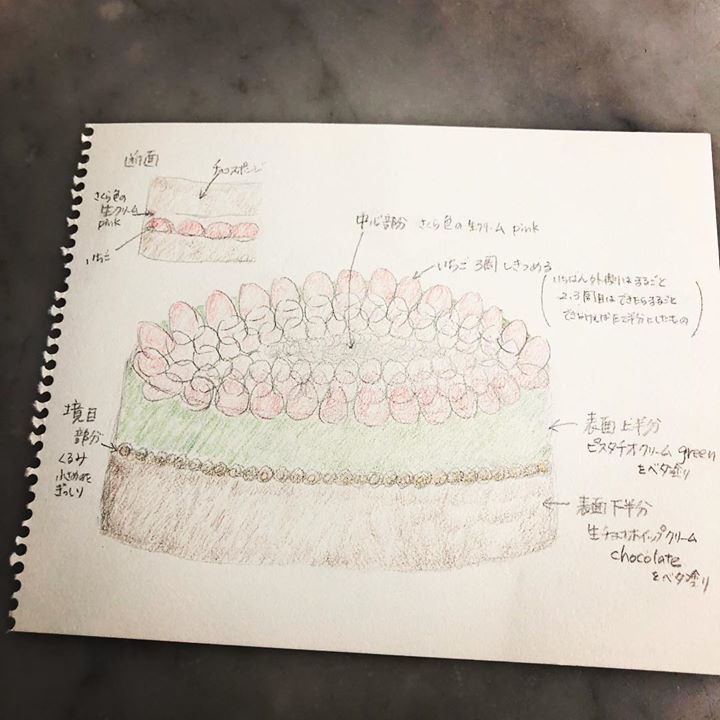 断面
チョコスポンジ
さくら色の
生クリーム
pink
いちご
中心部分 さくら色の生クリーム pink
いちご 3周 しきつめる
いちばん外側はまるごと
2.3周目はできたらまるごと
できなければ半分にしたもの
境目
部分
くるみ
小さめを
ぎっしり
表面上半分
ピスタチオクリーム green
をベタ塗り
表面下半分
生チョコホイップクリーム
chocolate
をベタ塗り